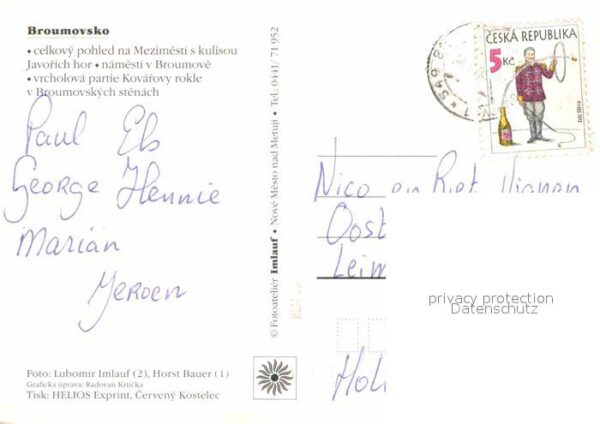 Broumovsko
• celkový pohled na Meziměstí s kulisou
Javořích hor • náměstí v Broumově
• vrcholová partie Kovářovy rokle
v Broumovských stěnách
Paul Els
George Hennie
Marián
Jeroen
Foto: Lubomír Imlauf (2), Horst Bauer (1)
Grafická úprava: Radovan Krtička
Tisk: HELIOS Exprint, Červený Kostelec
© Fotoateliér Imlauf • Nové Město nad Metují • Tel.: 0441/ 71 952
ČESKÁ REPUBLIKA
5 Kč
549
Nico en Riet
Oost
Leim
Hol
privacy protection
Datenschutz